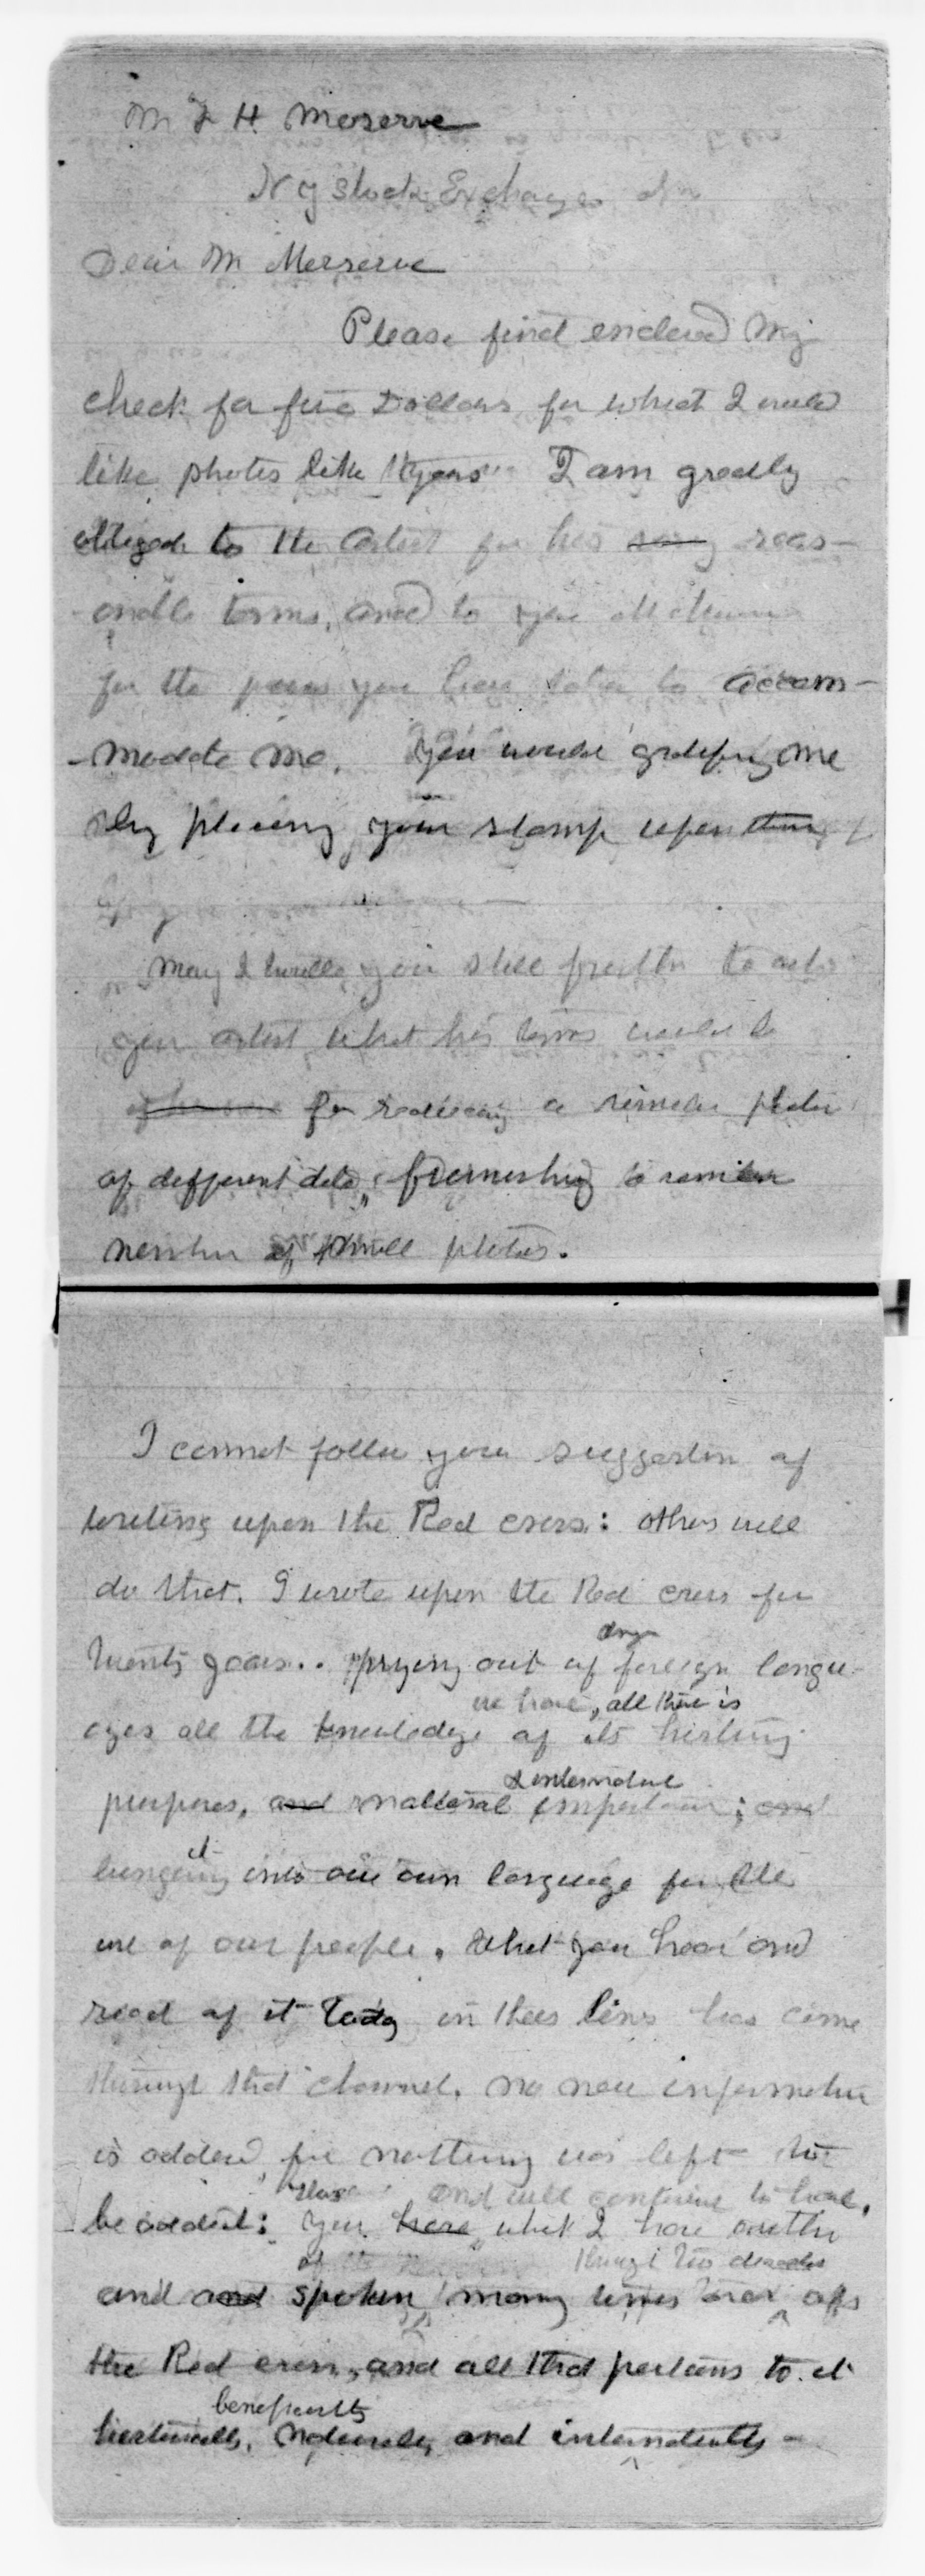 Mr F H Meserve
N Y Stock Exchange
Dear Mr Meserve
Please find enclosed my
check for five Dollars for what I would
like photos like yours I am greatly
obliged to the artist for his very reas-
onable terms, and to you
for the pains you have taken to accom-
modate me. You would gratify me
by placing your stamp upon them
May I trouble you still further to ask
your artist what his terms would be
for reducing a similar photo
of different date, furnishing a similar
number of small photos.
I cannot follow your suggestion of
writing upon the Red cross: others will
do that. I wrote upon the Red cross for
twenty years.. prying out of foreign langu-
we have, all there is
ages all the knowledge of its history
& international
purposes, and national importance; and
it
bringing into our own language for the
use of our people. What you hear and
read of it today in these lines has come
through that channel. No new information
is added for nothing was left to
and will continue to have,
be added: You have what I have written
through two decades
and and spoken many times over of
the Red cross, and all that pertains to it
beneficently
historically, nationally, and internationally -